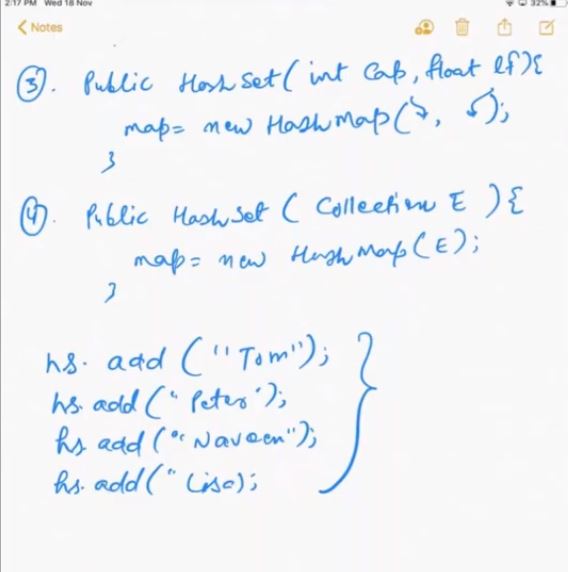 2:17 PM Wed 18 Nov 32%
Notes
3. Public HashSet( int Cap, float lf){
map= new HashMap( , );
}
4. Public HashSet ( Collection E ){
map= new HashMap(E);
}
hs. add ("Tom");
hs. add ("Peter");
hs add ("Naveen");
hs. add ("Lisa);